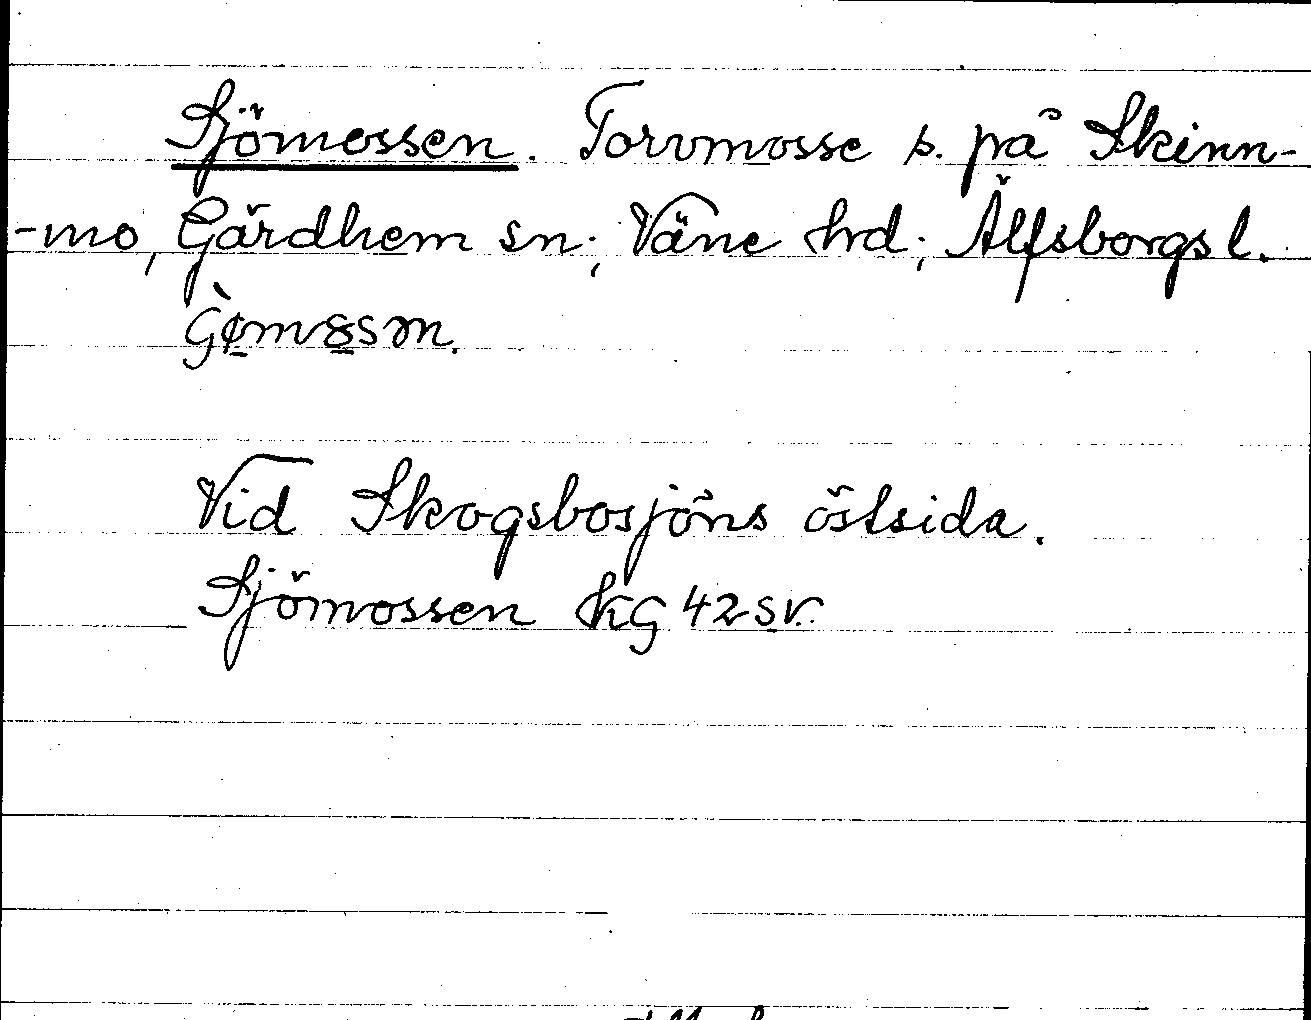 Sjömossen. Torvmosse s. på Skinn-
-mo, Gärdhem sn; Väne hrd; Älfsborgs l.
Vid Skogsbosjöns östsida.
Sjömossen KG 42 SV.